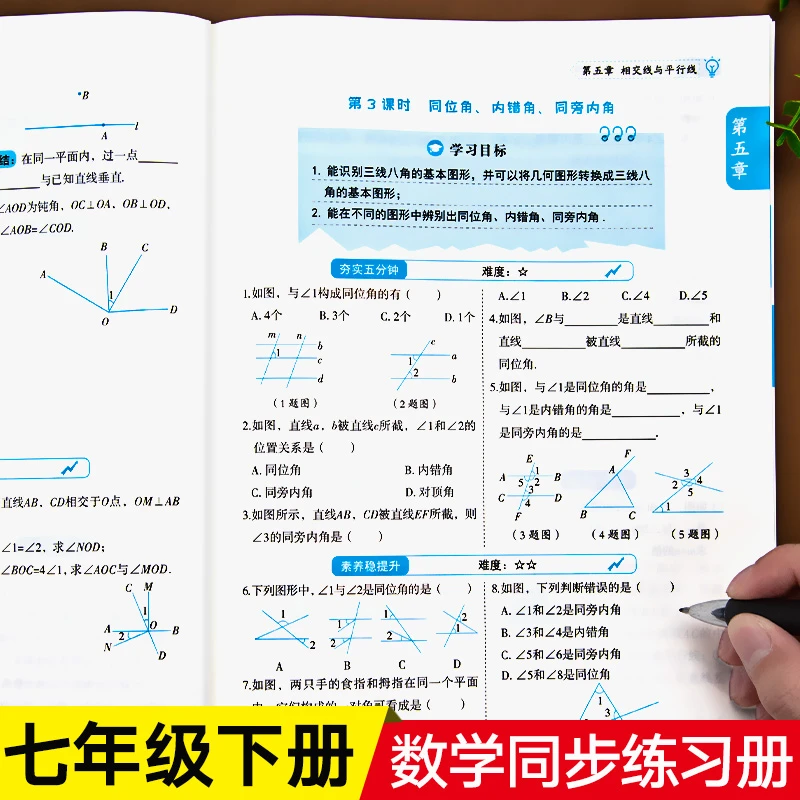 B
A
l
结：在同一平面内，过一点______
______与已知直线垂直.
∠AOD为钝角，OC⊥OA，OB⊥OD，
∠AOB=∠COD.
B C
A
1
O D
直线AB，CD相交于O点，OM⊥AB
∠1=∠2，求∠NOD；
∠BOC=4∠1，求∠AOC与∠MOD.
C M
1
A 2 O B
N
D
第五章 相交线与平行线
第五章
第3课时 同位角、内错角、同旁内角
学习目标
1. 能识别三线八角的基本图形，并可以将几何图形转换成三线八
角的基本图形；
2. 能在不同的图形中辨别出同位角、内错角、同旁内角.
夯实五分钟 难度：☆
1.如图，与∠1构成同位角的有（ ）
A. 4个 B. 3个 C. 2个 D. 1个
m n
1 b
c
d
c
1 a
2 b
（1题图） （2题图）
2.如图，直线a，b被直线c所截，∠1和∠2的
位置关系是（ ）
A. 同位角 B. 内错角
C. 同旁内角 D. 对顶角
3.如图所示，直线AB，CD被直线EF所截，则
∠3的同旁内角是（ ）
A.∠1 B.∠2 C.∠4 D.∠5
4.如图，∠B与______是直线______和
直线______被直线______所截的
同位角.
5.如图，与∠1是同位角的角是______，
与∠1是内错角的角是______，与∠1
是同旁内角的是______.
E
A 1 B
5 2
3
C 4 D
F
F
A
B C
3
2 4
5
1
（3题图） （4题图） （5题图）
素养稳提升 难度：☆☆
6.下列图形中，∠1与∠2是同位角的是（ ）
1 2
1 2
1 2
1 2
A B C D
7.如图，两只手的食指和拇指在同一个平面
8.如图，下列判断错误的是（ ）
A. ∠1和∠2是同旁内角
B. ∠3和∠4是内错角
C. ∠5和∠6是同旁内角
D. ∠5和∠8是同位角
1
3
七年级下册 数学同步练习册